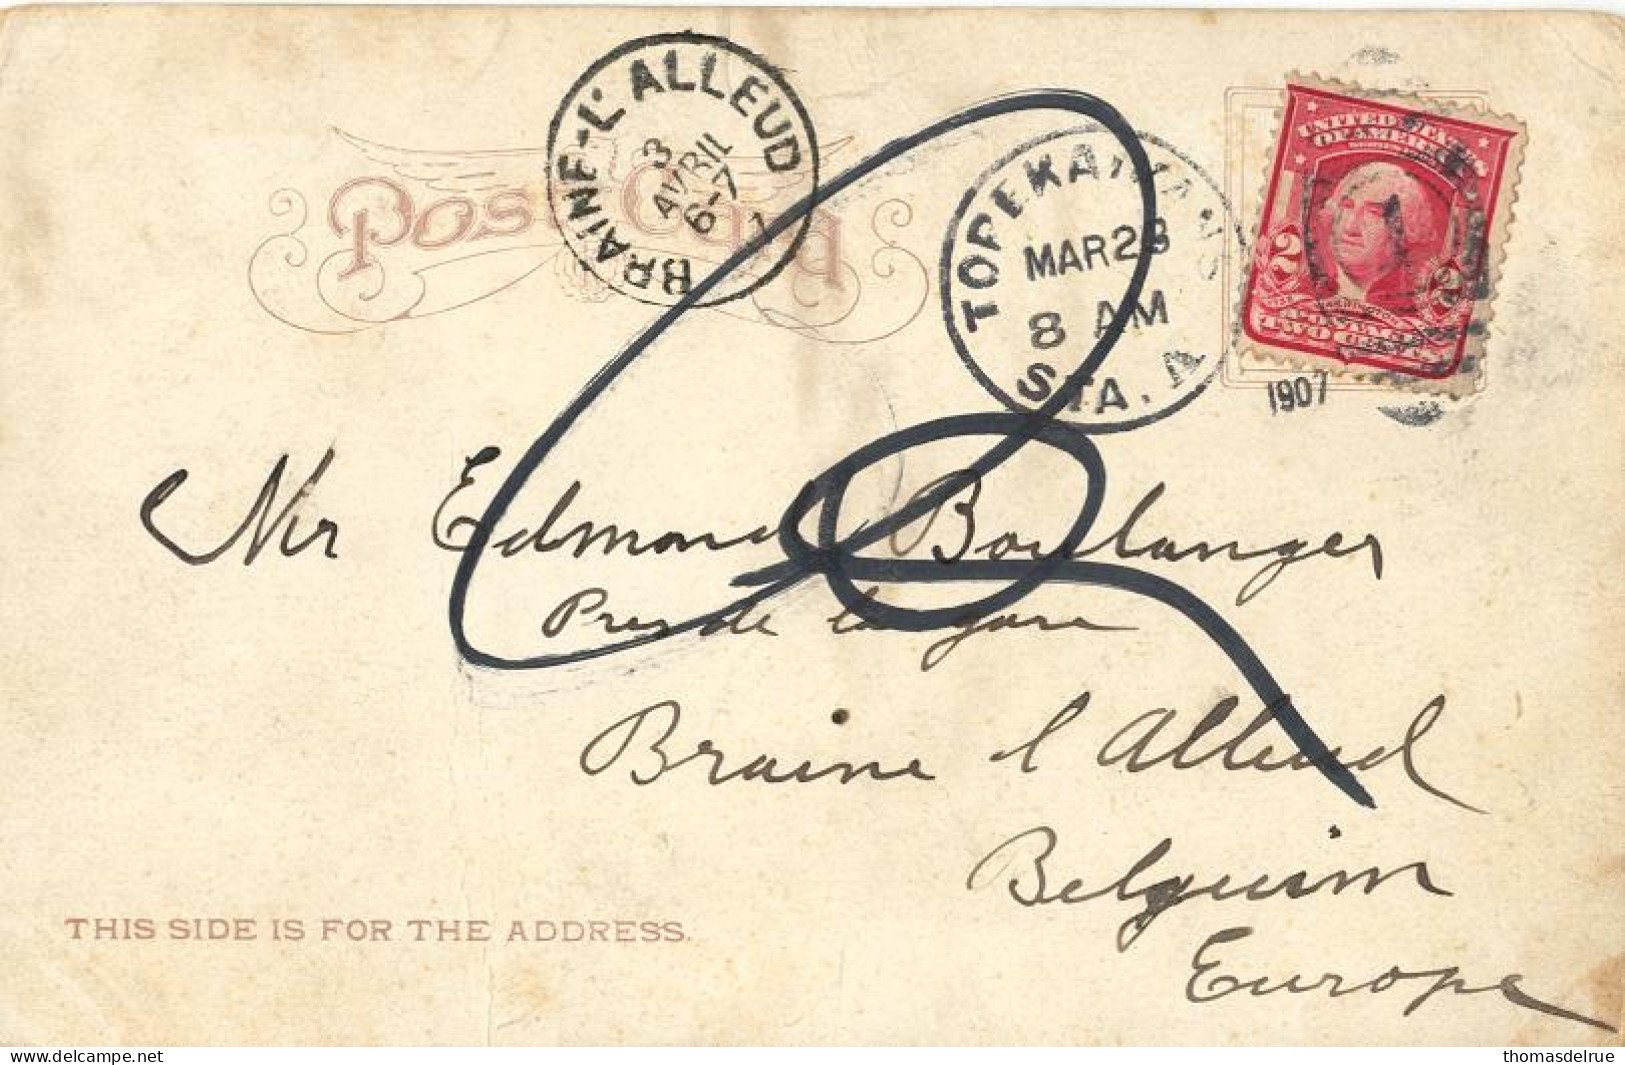 BRAINE-L'ALLEUD
3
AVRIL
6-7
Post Card
TOPEKA, KANS
MAR 28
8 AM
STA. A
1907
UNITED STATES
OF AMERICA
2 2
TWO CENTS
Mr Edmond Boulanger
Pres de la gare
Braine l Alleud
Belguim
Europe
THIS SIDE IS FOR THE ADDRESS.
thomasdelrue